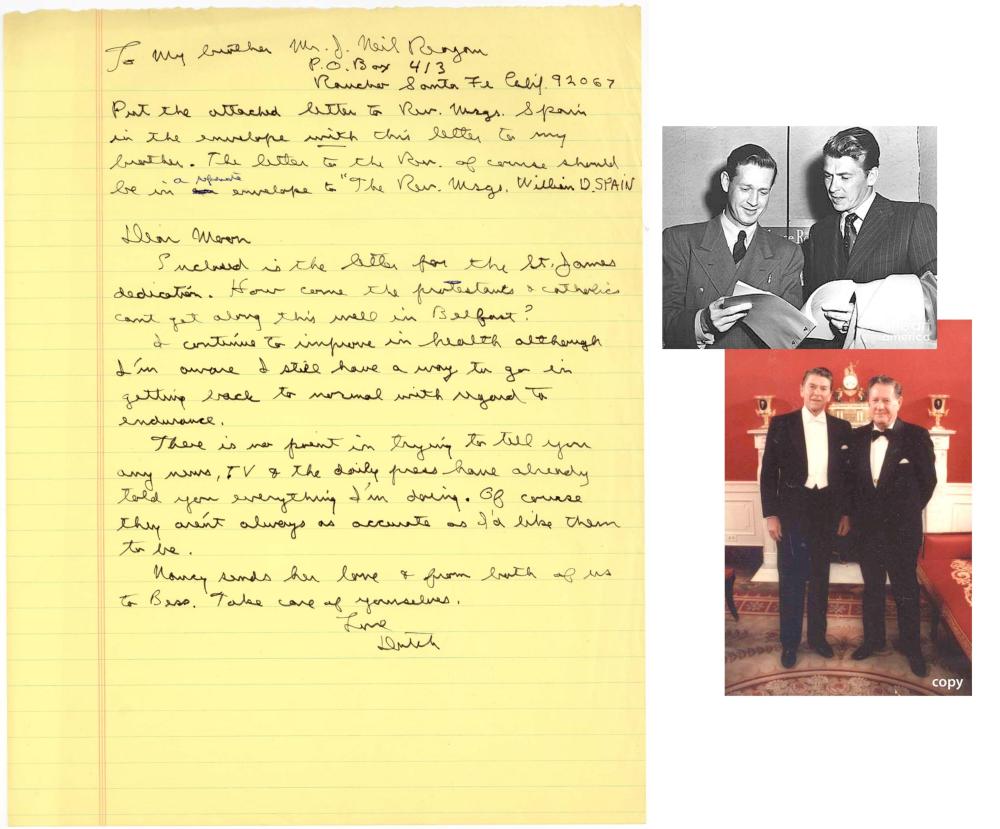 To My brother Mr. J. Neil Reagan
P.O. Box 413
Rancho Santa Fe Calif. 92067
Put the attached letter to Rev. Msgr. Spain
in the envelope with this letter to my
brother. The letter to the Rev. of course should
be in a separate envelope to "The Rev. Msgr. William D. SPAIN
Dear Moon
Enclosed is the letter for the St. James
dedication. How come the protestants & catholics
can't get along this well in Belfast?
I continue to improve in health although
I'm aware I still have a way to go in
getting back to normal with regard to
endurance.
There is no point in trying to tell you
any news, TV & the daily press have already
told you everything I'm doing. Of course
they aren't always as accurate as I'd like them
to be.
Nancy sends her love & from both of us
to Bess. Take care of yourselves.
Love
Dutch
america
copy